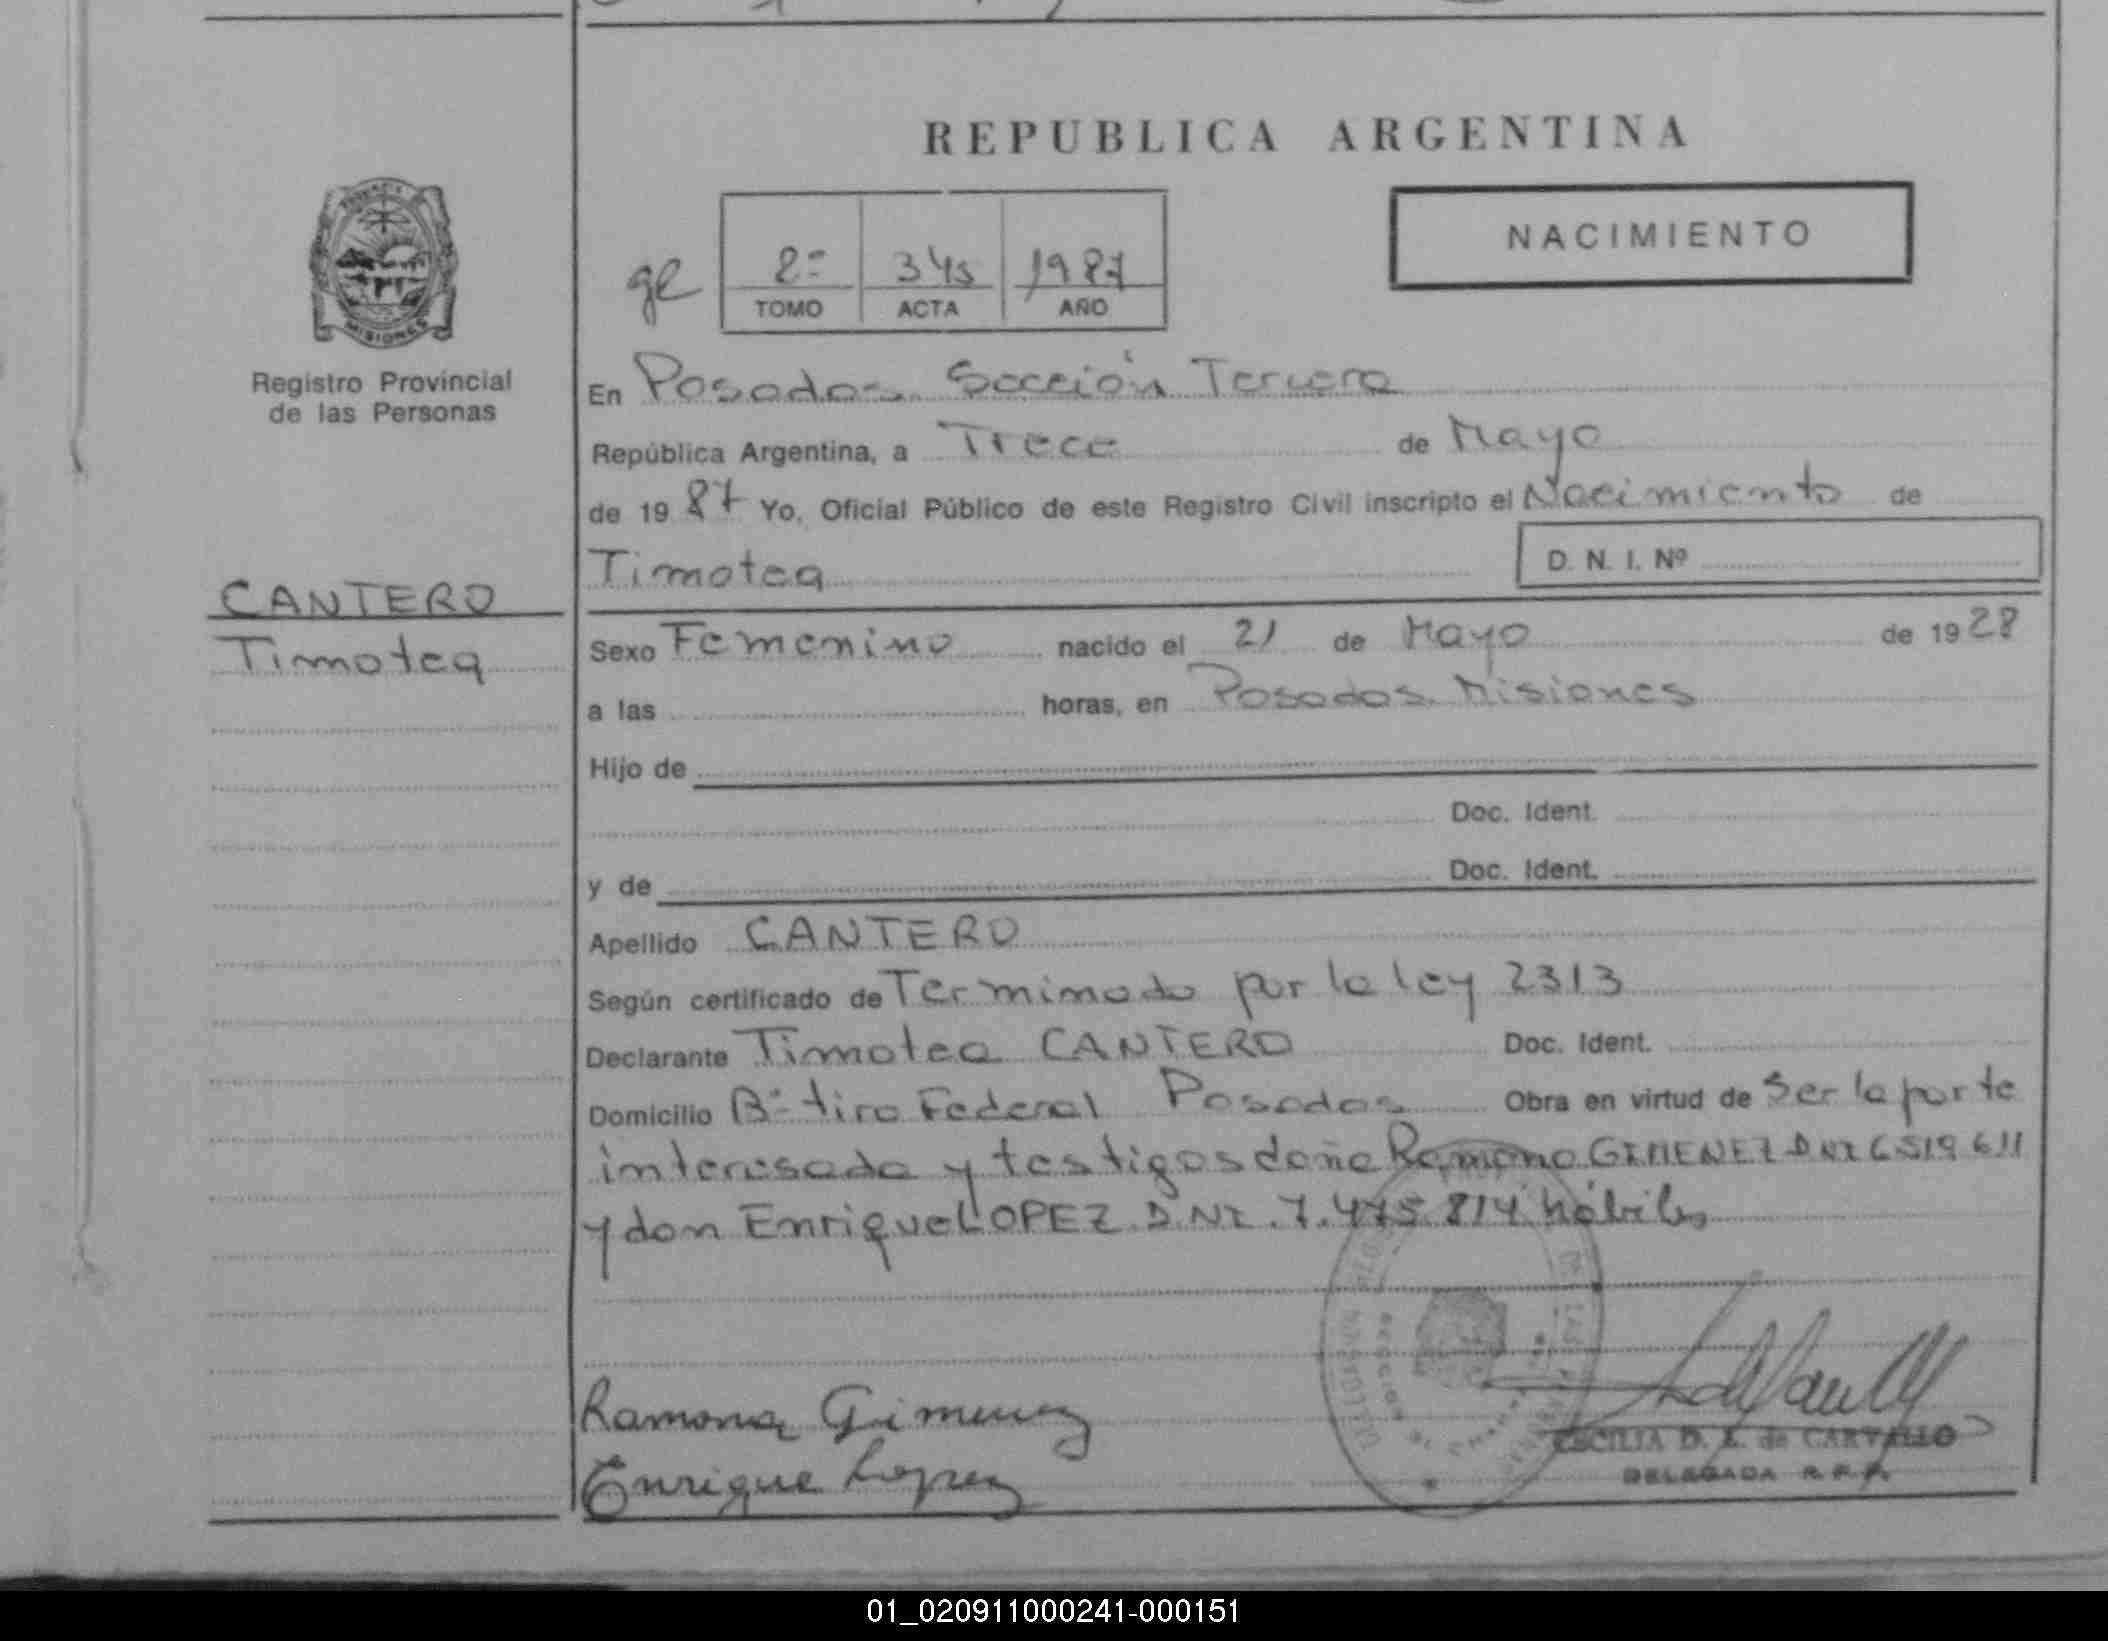 REPUBLICA ARGENTINA
NACIMIENTO
PROVINCIA
MISIONES
Registro Provincial
de las Personas
ge 2º 345 1987
TOMO ACTA AÑO
En Posadas Sección Tercera
República Argentina, a Trece de Mayo
de 19 87 Yo, Oficial Público de este Registro Civil inscripto el Nacimiento de
Timotea D. N. I. Nº
CANTERO
Timotea
Sexo Femenino nacido el 21 de Mayo de 19 28
a las horas, en Posadas. Misiones
Hijo de
Doc. Ident.
y de Doc. Ident.
Apellido CANTERO
Según certificado de Terminado por la ley 2313
Declarante Timotea CANTERO Doc. Ident.
Domicilio Bº tiro Federal Posadas Obra en virtud de Ser la parte
interesada y testigos doña Ramona GIMENEZ DNI 6519611
y don Enrique LOPEZ D.NI. 7.475.814 hábiles
Ramona Gimenez
Enrique Lopez
CECILIA D. de CARVALLO
DELEGADA R.P.P.
01_020911000241-000151